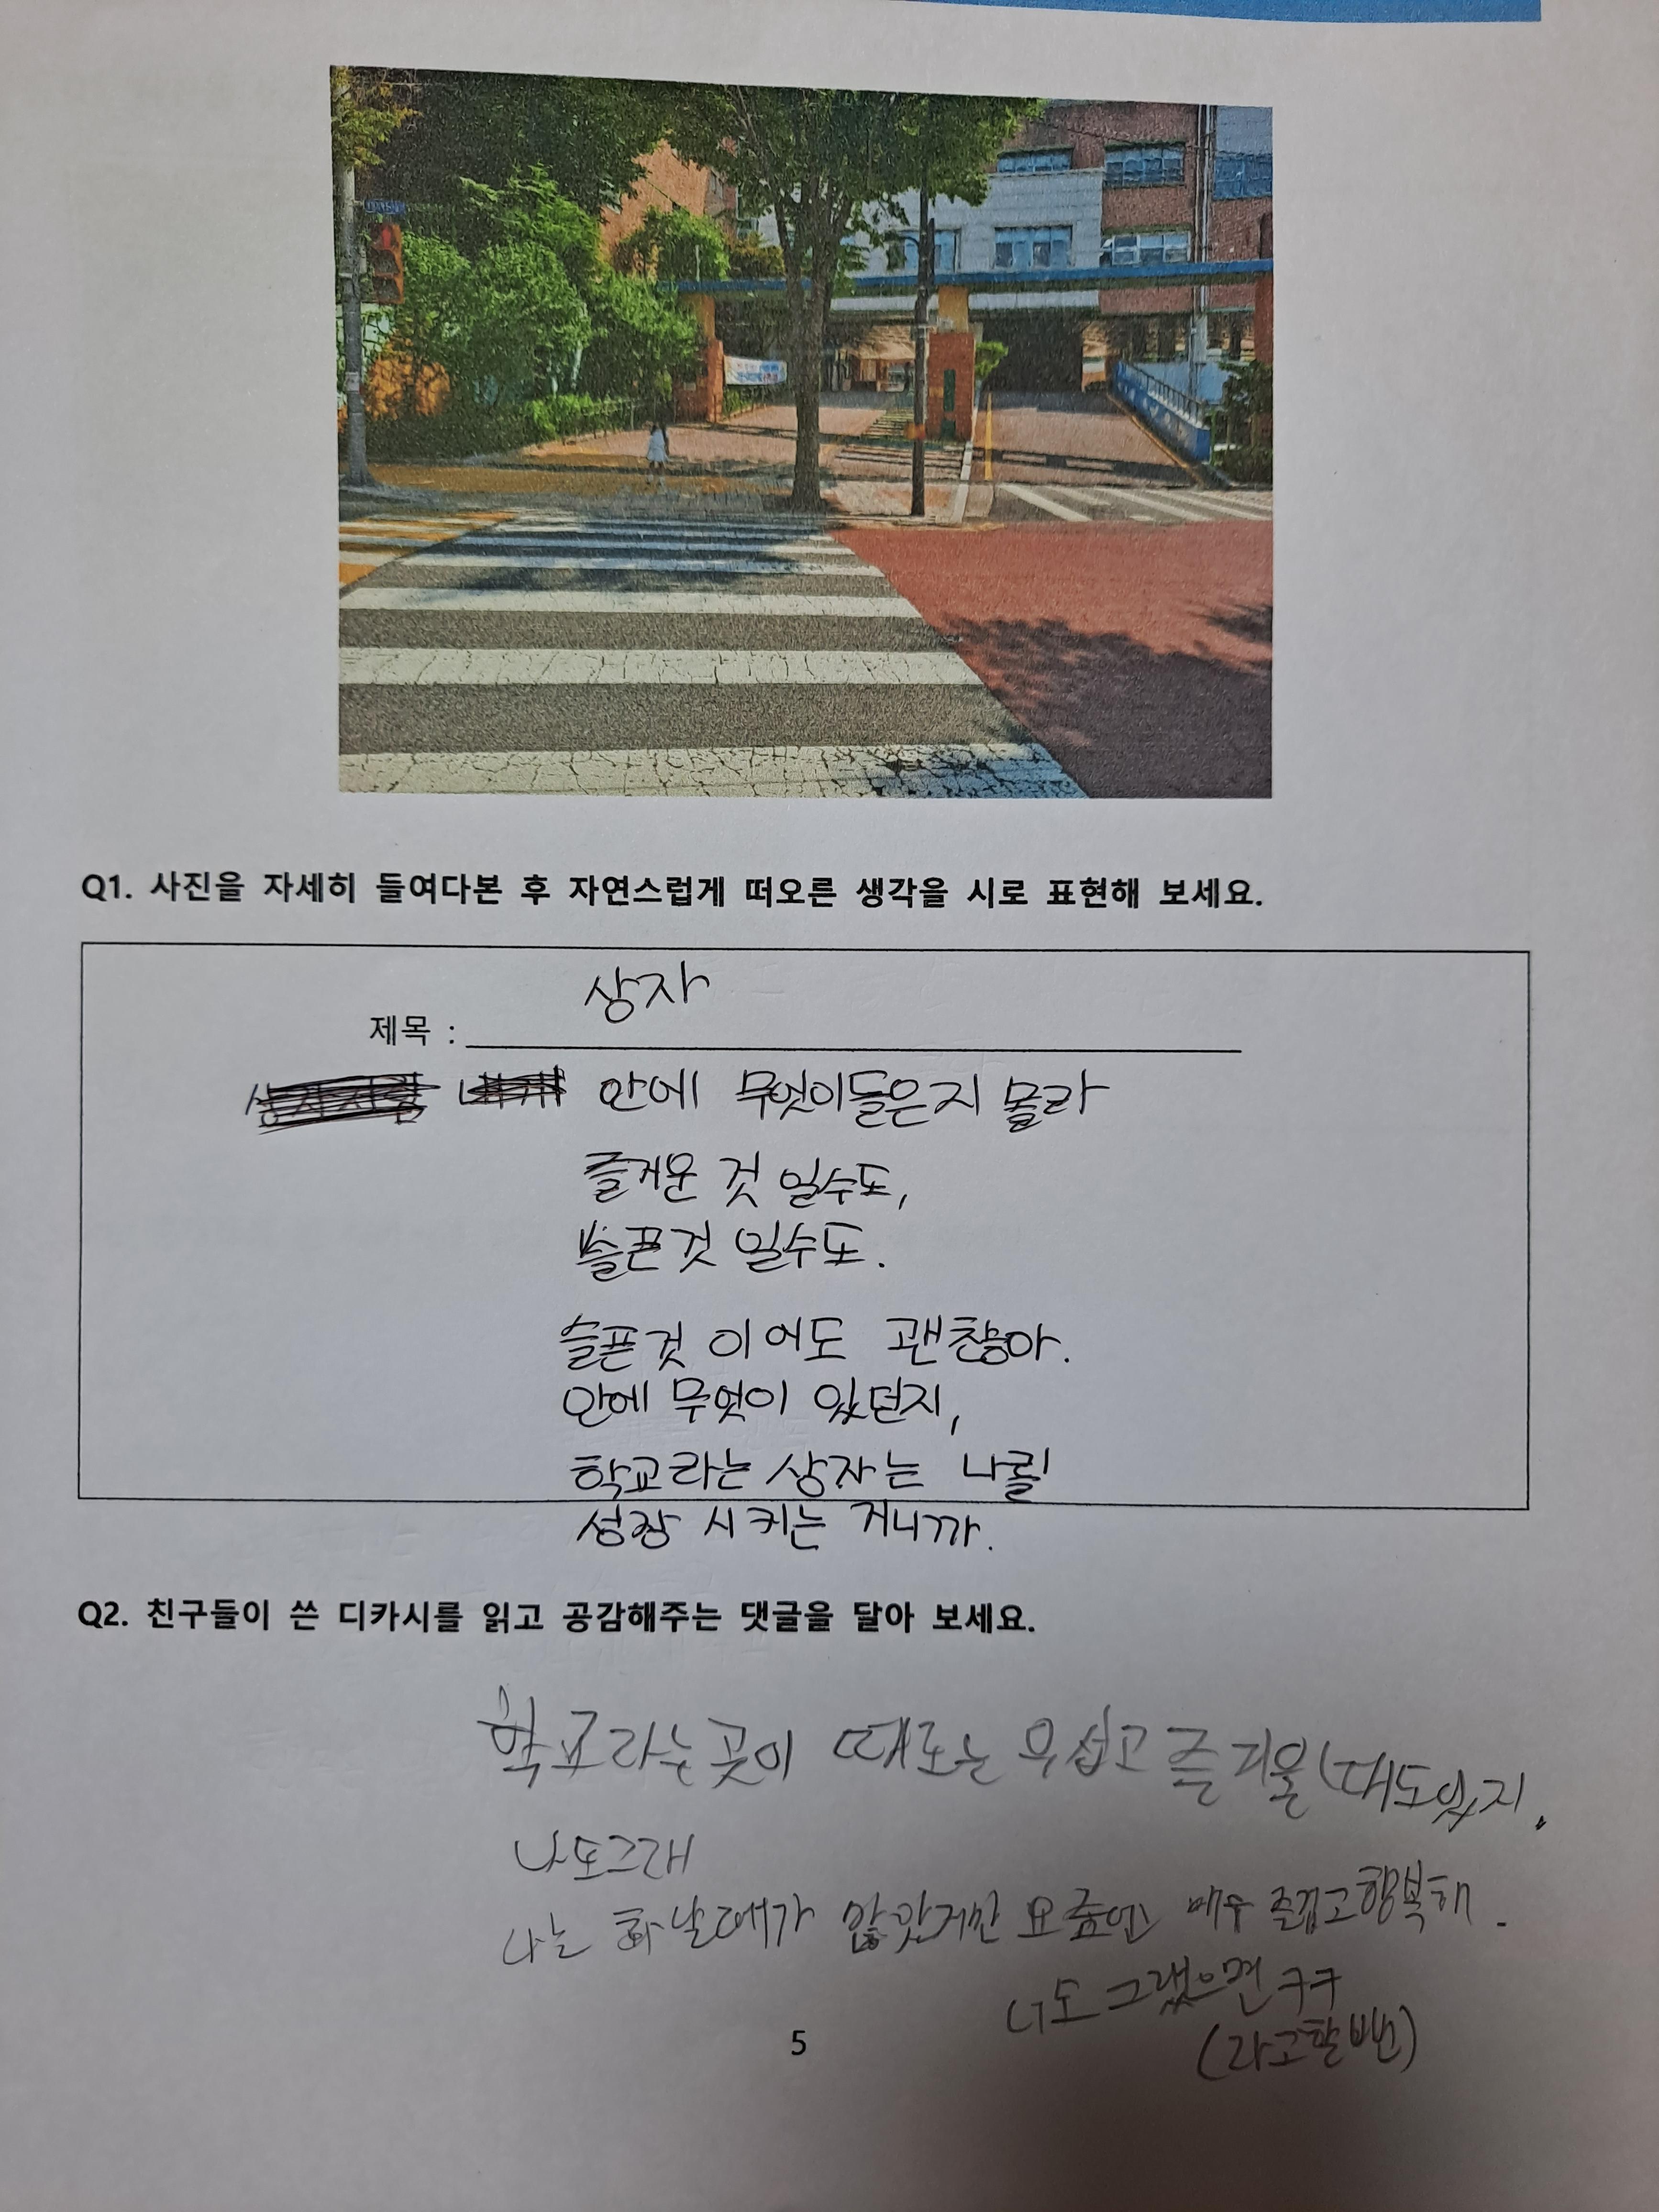 Q1. 사진을 자세히 들여다본 후 자연스럽게 떠오른 생각을 시로 표현해 보세요.
상자
제목 :
안에 무엇이들은지 몰라
즐거운 것 일수도,
슬픈것 일수도.
슬픈것 이어도 괜찮아.
안에 무엇이 있던지,
학교라는 상자는 나를
성장 시키는 거니까.
Q2. 친구들이 쓴 디카시를 읽고 공감해주는 댓글을 달아 보세요.
학교라는곳이 때로는 무섭고 즐거울 때도있지.
나도그래
나는 화날때가 많았지만 요즘엔 매우 즐겁고행복해.
너도 그랬으면 ㅋㅋ
(라고할뻔)
5